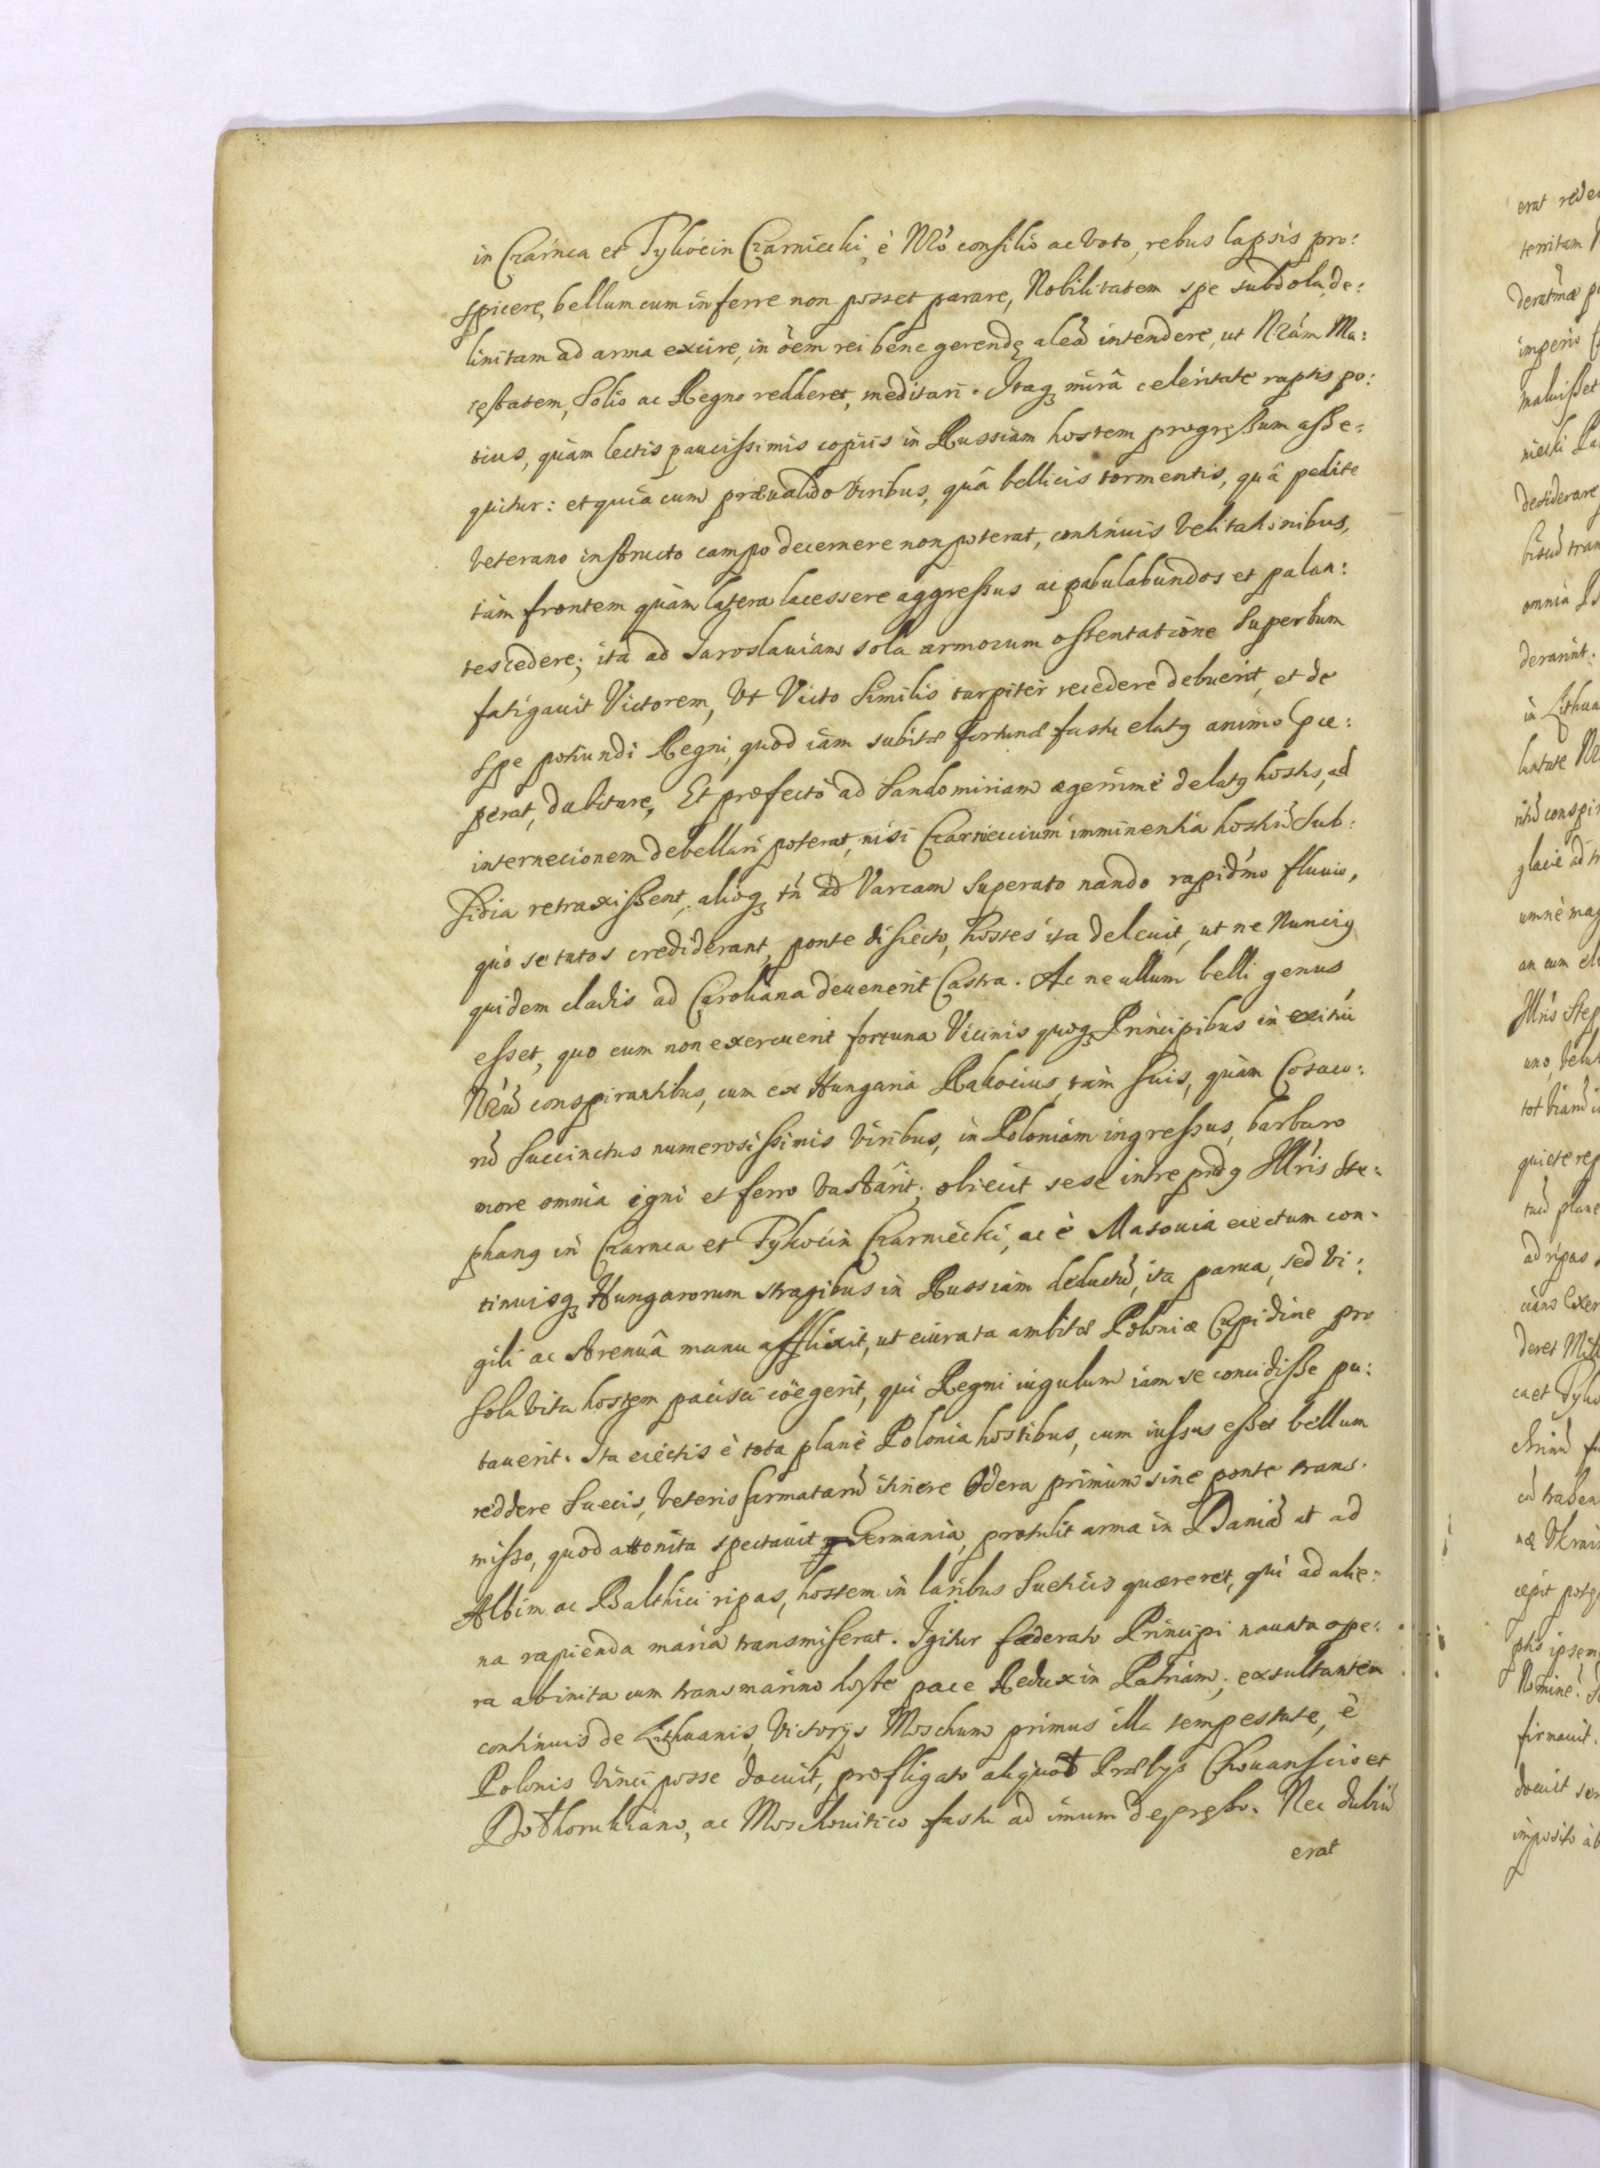 in Czarnca et Tykocin Czarniecki, è Nrõ consilio ac voto, rebus lapsis pro:
spicere, bellum cum inferre non posset parare, Nobilitatem spe subdola de:
linitam ad arma excire, in õem rei bene gerendę aleã intendere, ut Nrãm Ma:
iestatem, Solio ac Regno redderet, meditari. Itaq mirâ celeritate raptis po:
tius, quàm lectis paucissimis copiis in Russiam hostem progressum asse:
quitur: et quia cum prævalido viribus, quâ bellicis tormentis, quâ pedite
veterano instructo campo decernere non poterat, continuis velitationibus,
tàm frontem quàm latera lacessere aggressus ac pabulabundos et palan:
tes cędere; ita ad Jaroslauiam sola armorum ostentatione Superbum
fatigauit Victorem, Vt Victo Similis turpiter recedere debuerit, et de
Spe potiundi Regni, quod iam subitæ fortunæ fastu elatq animo cœ:
perat, dubitare. Et profecto ad Sandomiriam ægerrimè delatq hostis, ad
internecionem debellari poterat, nisi Czarnieccium imminentia hostiũ Sub:
sidia retraxissent, alioq tñ ad Varcam Superato nando rapidmo fluuio,
quo se tutos crediderant, ponte disiecto, hostes ita deleuit, ut ne Nunciq
quidem cladis ad Caroliana deuenerit Castra. Ac ne ullum belli genus
esset, quo eum non exercuerit fortuna Vicinis quoq Principibus in exitiũ
Nrũ conspirantibus, cum ex Hungaria Rakocius, tàm suis, quàm Cosaco:
rũ Succinctus numerosissimis viribus, in Poloniam ingressus, barbaro
more omnia igni et ferro vastârit; obiecit sese intrepidq Mris Ste:
phanq in Czarnca et Tykocin Czarniecki, ac è Masouia eiectum con:
tinuisq Hungarorum stragibus in Russiam deductũ, ita parua, sed vi:
gili ac strenuâ manu afflixit, ut eiurata ambitæ Poloniæ Cupidine pro
sola vita hostem pacisci coëgerit, qui Regni iugulum iam se concidisse pu:
tauerit. Ita eiectis è tota planè Polonia hostibus, cum iussus esset bellum
reddere Suecis, veteris Sarmatarũ itinere Odera primùm sine ponte trans:
misso, quod attonita spectauit Germania, protulit arma in Daniã ut ad
Albim ac Balthici ripas, hostem in laribus Suethicis quæreret, qui ad alie:
na rapienda maria transmiserat. Igitur fæderato Principi nauata ope:
ra ab inita cum transmarino hoste pace Redux in Patriam; exsultantem
continuis de Lithuanis, Victorijs Moschum primus illa tempestate, è
Polonis vinci posse docuit, profligato aliquot Prælijs Chouanscio et
Dolhorukiano, ac Moschouitico fastu ad imum depresso. Nec dubiũ
erat